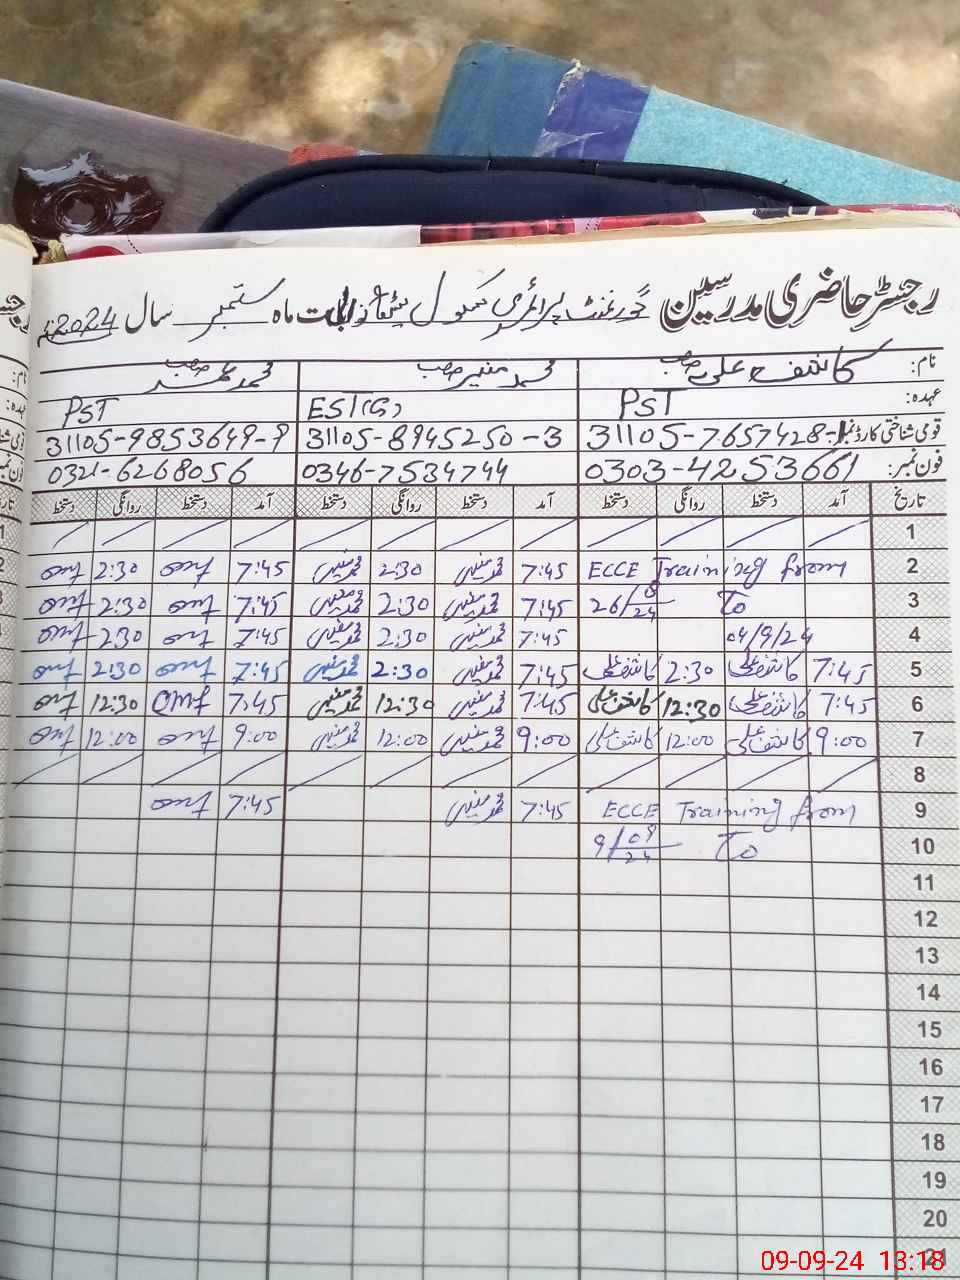 رجسٹر حاضری مدرسین گورنمنٹ پرائمری سکول بابت ماہ ستمبر سال 2024ء
نام: کاشف علی صاحب محمد منیر صاحب محمد عمر صاحب
عہدہ: PST EST(G) PST
قومی شناختی کارڈ نمبر 31105-7657428-1 31105-8945250-3 31105-9853649-9
فون نمبر: 0303-4253661 0346-7534744 0321-6268056
تاریخ آمد دستخط روانگی دستخط آمد دستخط روانگی دستخط آمد دستخط روانگی دستخط
1
2 ECCE Training from 7:45 محمد منیر 2:30 محمد منیر 7:45 2:30
3 26/8/24 To 7:45 محمد منیر 2:30 محمد منیر 7:45 2:30
4 04/9/24 7:45 محمد منیر 2:30 محمد منیر 7:45 2:30
5 7:45 کاشف علی 2:30 کاشف علی 7:45 محمد منیر 2:30 محمد منیر 7:45 2:30
6 7:45 کاشف علی 12:30 کاشف علی 7:45 محمد منیر 12:30 محمد منیر 7:45 12:30
7 9:00 کاشف علی 12:00 کاشف علی 9:00 محمد منیر 12:00 محمد منیر 9:00 12:00
8
9 ECCE Training from 7:45 محمد منیر 7:45
10 9/09/24 To
11
12
13
14
15
16
17
18
19
20
21
09-09-24 13:18